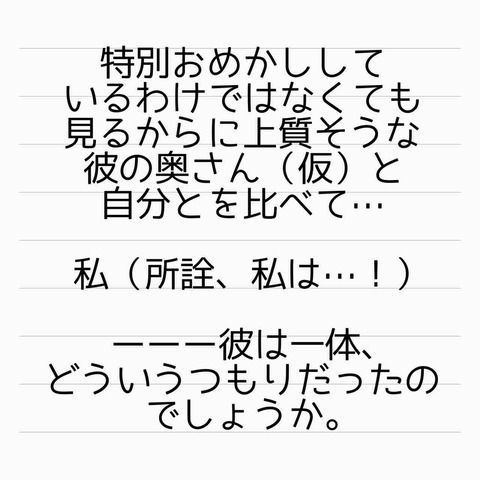 特別おめかしして
いるわけではなくても
見るからに上質そうな
彼の奥さん（仮）と
自分とを比べて…
私（所詮、私は…！）
ーーー彼は一体、
どういうつもりだったの
でしょうか。